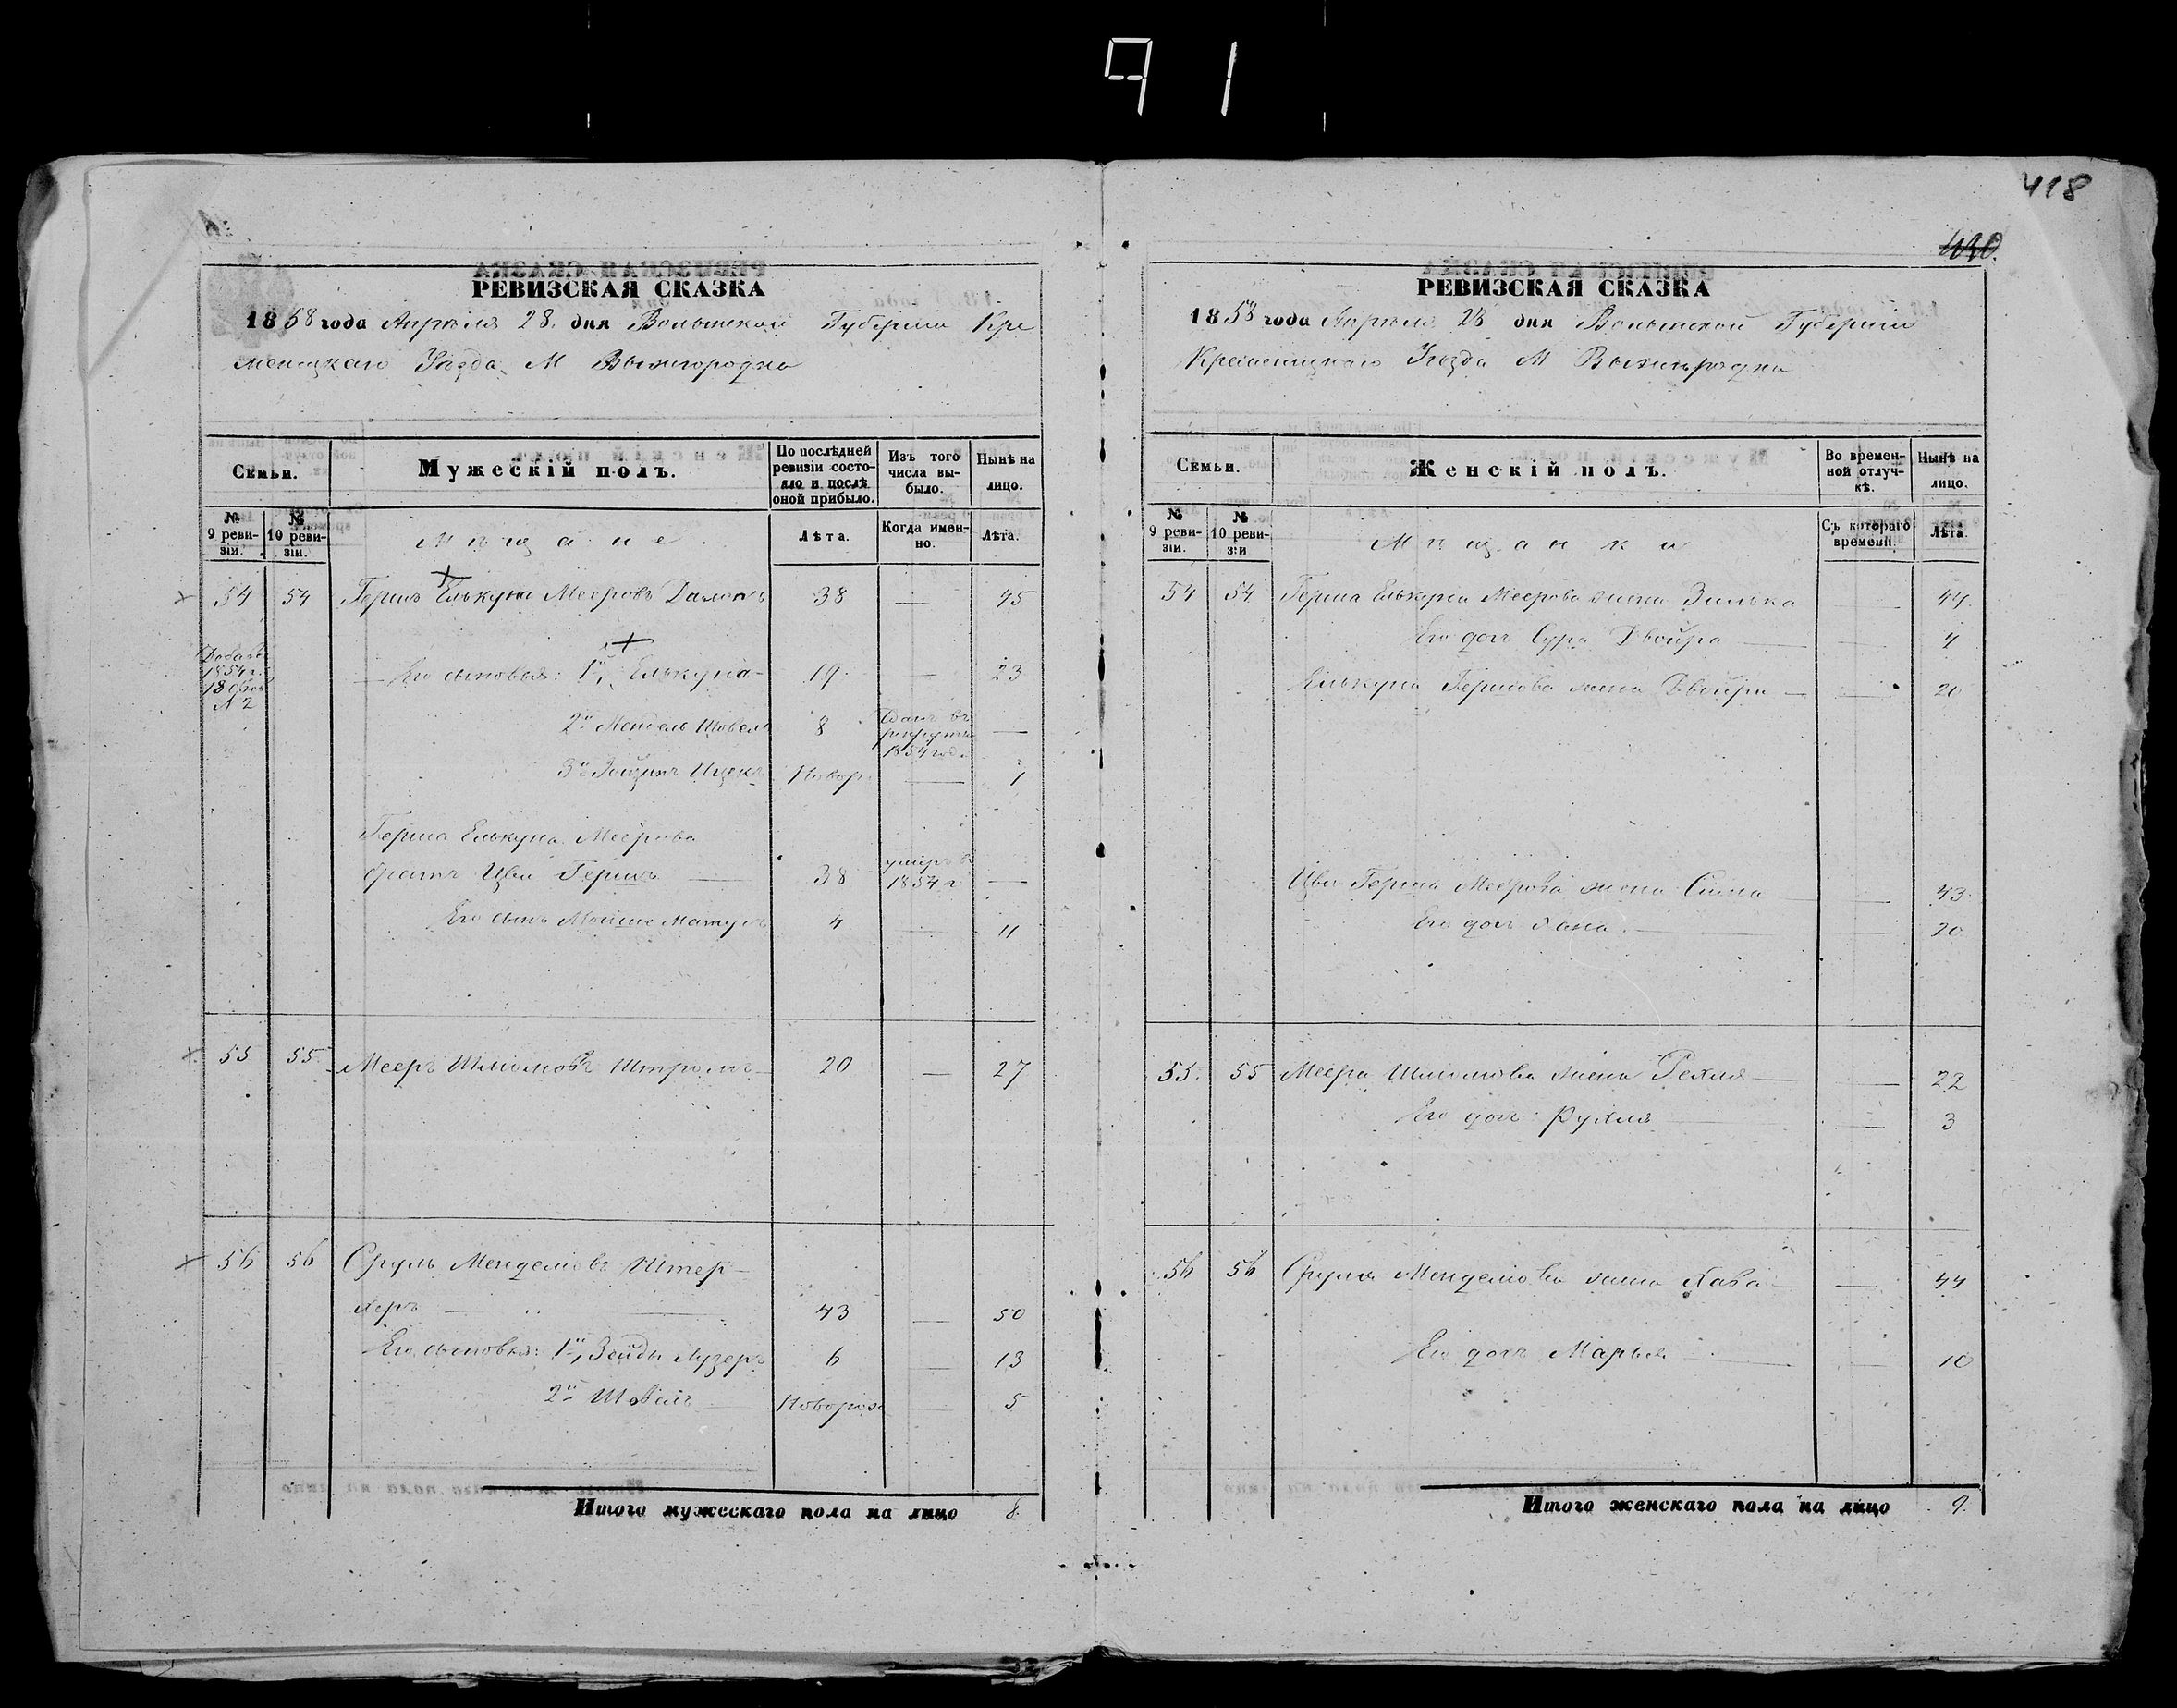 91
418
РЕВИЗСКАЯ СКАЗКА
1858 года Апрѣля 28 дня Волынской Губерніи Кре
менецкаго Уѣзда М Вышгородка
Семьи.
Мужескій полъ.
По послѣдней ревизіи состояло и послѣ оной прибыло.
Изъ того числа выбыло.
Нынѣ на лицо.
№ 9 ревизіи.
№ 10 ревизіи.
Мѣщане.
Лѣта.
Когда именно.
Лѣта.
54 54 Гершъ Елькуна Мееровъ 38 — 45
1854 г.
№ 2
Его сыновья: 1й, Елькуна 19 — 23
2й Мендель Шовель 8 Данъ въ рекруты 1854 год. —
3й Ицекъ Новор — 1
Герша Елькуна Меерова
братъ Цви Гершъ — 38 умеръ въ 1854 г —
Его сынъ Мойше 4 — 11
55 55 Мееръ Шліомовъ Штромъ 20 — 27
56 56 Сруль Менделіовъ Штер-
херъ — 43 — 50
Его сыновья: 1й, Зейды Лузеръ 6 — 13
2й Шовель Новорож — 5
Итого мужескаго пола на лицо 8.
РЕВИЗСКАЯ СКАЗКА
1858 года Апрѣля 28 дня Волынской Губерніи
Кременецкаго Уѣзда М Вышгородка
Семьи.
Женскій полъ.
Во временной отлучкѣ.
Нынѣ на лицо.
№ 9 ревизіи.
№ 10 ревизіи
Мѣщанки
Съ котораго времени.
Лѣта.
54 54 Герша Елькуна Меерова жена Зилька — 44.
Его доч Сура Двойра — 4
Елькуна Гершова жена Двойра — 20
Цви Герша Меерова жена Сима — 43.
Его доч Хана — 20
55. 55 Меера Шліомова жена Рехля — 22
Его доч: Рухля — 3
56 56 Сруля Менделіова жена Хава — 44
Его доч Марьям — 10
Итого женскаго пола на лицо 9.